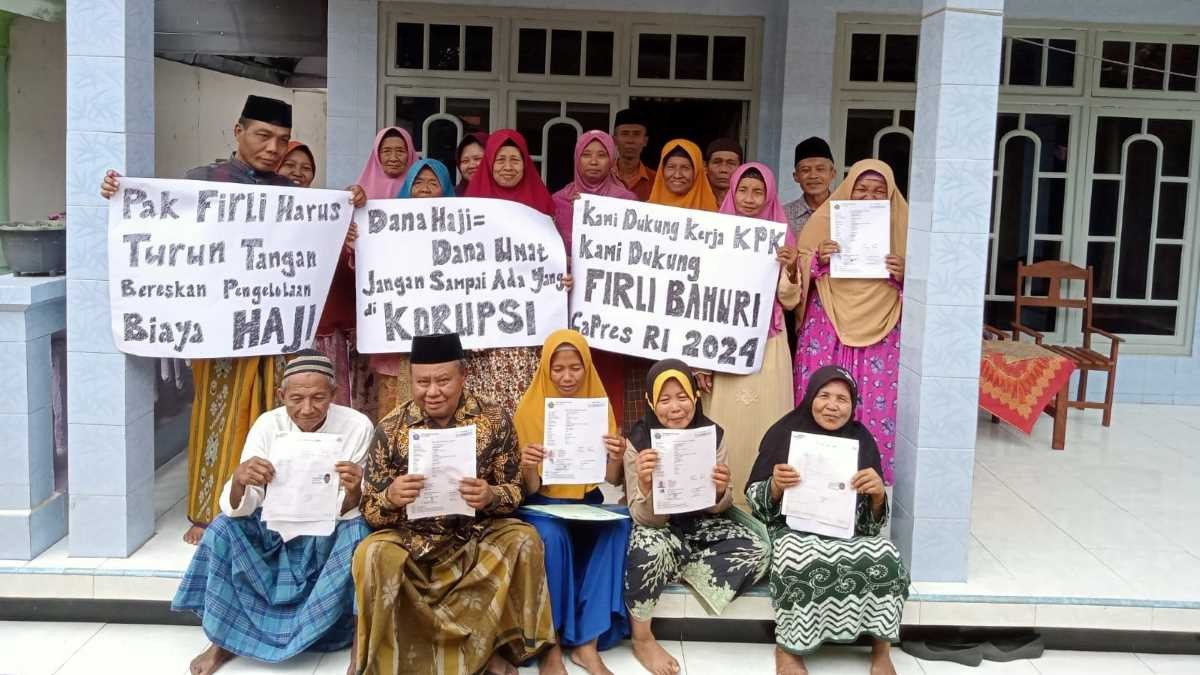 Pak FIRLI HARUS
TURUN TANGAN
BERESKAN PENGELOLAAN
BIAYA HAJI
DANA HAJI =
DANA UMAT
JANGAN SAMPAI ADA YANG
di KORUPSI
KAMI DUKUNG KERJA KPK
KAMI DUKUNG
FIRLI BAHURI
CaPRES RI 2024